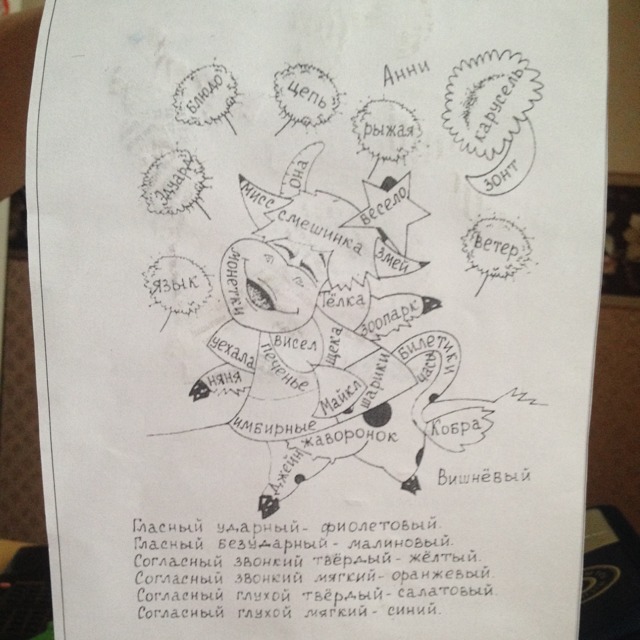 Анни
блюдо
цепь
рыжая
карусель
зонт
Мисс
она
смешинка
весело
змей
ветер
язык
монетки
Телка
зоопарк
уехала
висел
щека
печенье
няня
Майкл
шарики
билетики
часы
имбирные
жаворонок
Кобра
Джейн
Вишнёвый
Гласный ударный- фиолетовый.
Гласный безударный- малиновый.
Согласный звонкий твёрдый- жёлтый.
Согласный звонкий мягкий- оранжевый.
Согласный глухой твёрдый- салатовый.
Согласный глухой мягкий- синий.